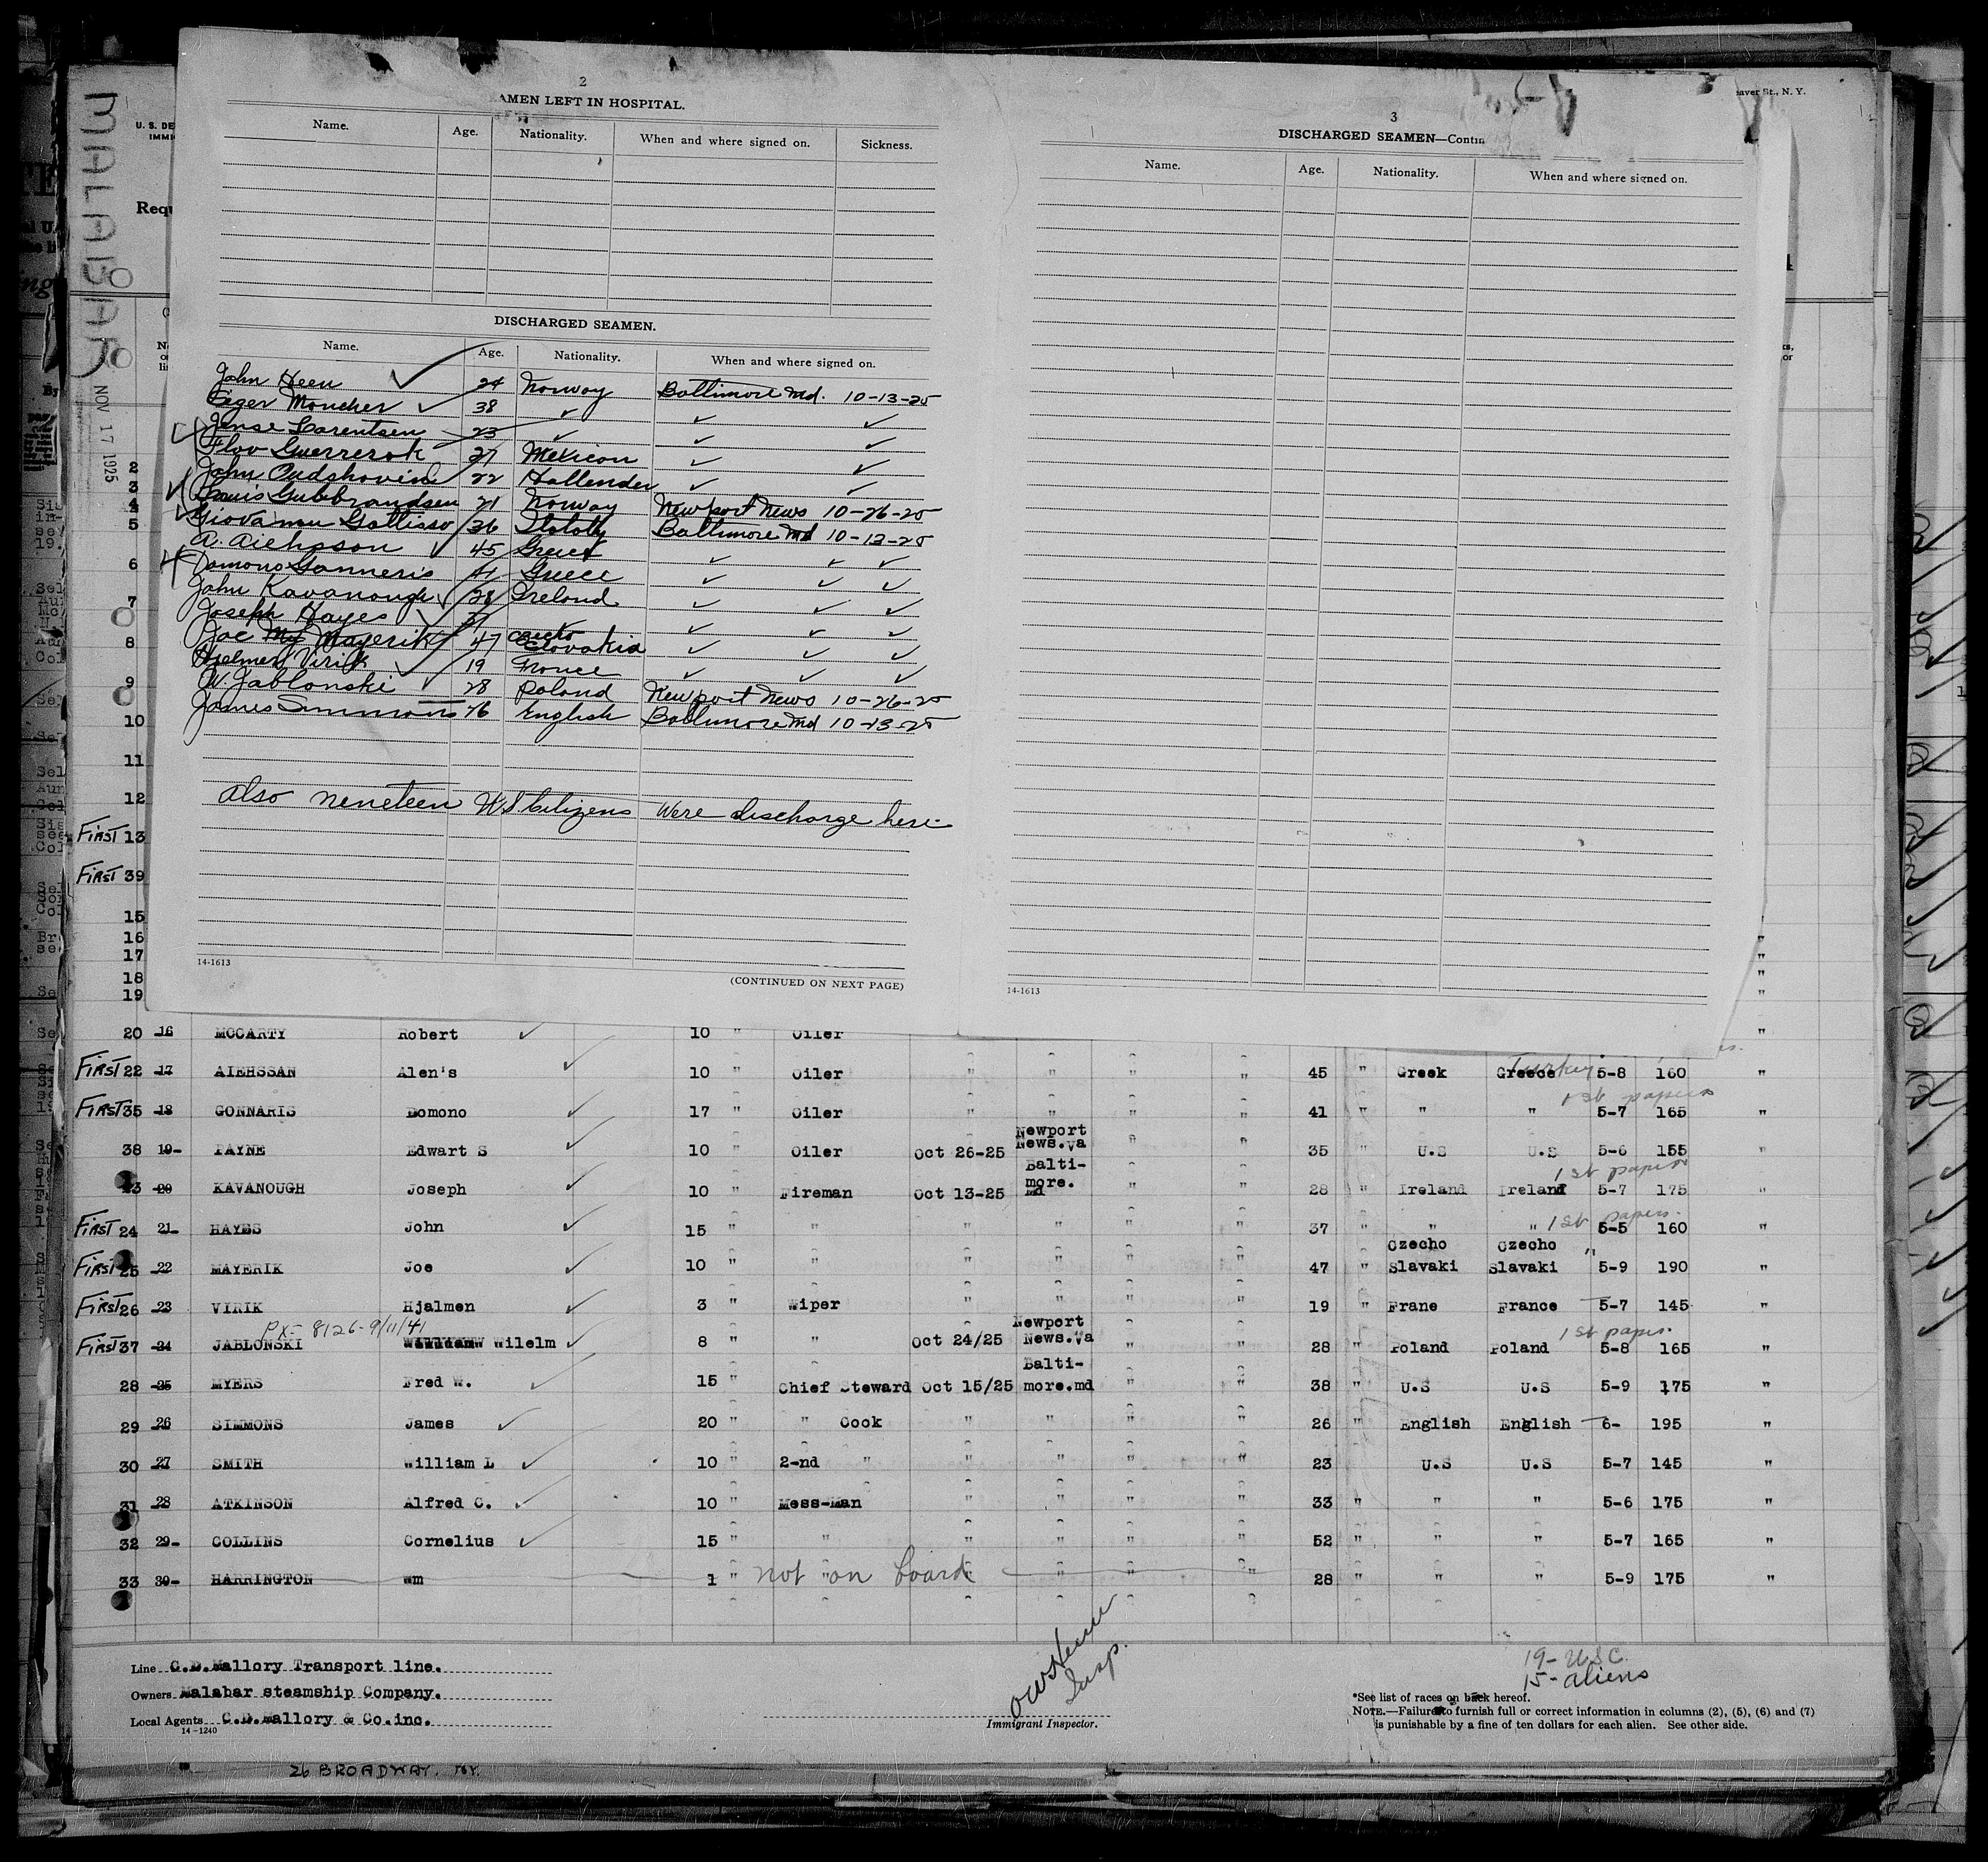 MALABAR
NOV 17 1925
U. S. DE
IMMI
Requ
aver St., N. Y.
2
AMEN LEFT IN HOSPITAL.
Name. Age. Nationality. When and where signed on. Sickness.
DISCHARGED SEAMEN.
Name. Age. Nationality. When and where signed on.
John Heen 24 Norway Baltimore Md. 10-13-25
Eiger Moncher 38 ✓ ✓ ✓
Jense Larentsen 23 ✓ ✓ ✓
Flov Guerrerok 27 Mexicon ✓ ✓
John Oudshovine 22 Hallender ✓ ✓
Louis Gulbbrandsen 21 Norway Newport News 10-26-25
Giovanni Gallisso 36 Baltimore Md 10-13-25
A. Aiehsson 45 Greece ✓ ✓ ✓
Domono Gonneris 41 Greece ✓ ✓ ✓
John Kavanough 28 Ireland ✓ ✓ ✓
Joseph Hayes 37 ✓ ✓ ✓
Joe My Mayerik 47 Czecko Slovakia ✓ ✓ ✓
Hjelmer Virik 19 Fronce ✓ ✓ ✓
W. Jablonski 28 Poland Newport News 10-26-25
James Simmons 26 English Baltimore Md 10-13-25
also neneteen U.S Citizens Were discharge here
14-1613
(CONTINUED ON NEXT PAGE)
3
DISCHARGED SEAMEN—Contin
Name. Age. Nationality. When and where signed on.
14-1613
2
3
4
5
6
7
8
9
10
11
12
FIRST 13
FIRST 39
15
16
17
18
19
20 16 MCCARTY Robert ✓ 10 " Oiler
FIRST 22 17 AIEHSSAN Alen's ✓ 10 " Oiler " " " " 45 " Greek Greece Turkey 5-8 160 "
1st papers
FIRST 35 18 GONNARIS Domono ✓ 17 " Oiler " " " " 41 " " " 5-7 165 "
38 19- PAYNE Edwart S ✓ 10 " Oiler Oct 26-25 Newport News.Va " " 35 " U.S U.S 5-6 155 "
1st papers
23 20 KAVANOUGH Joseph ✓ 10 " Fireman Oct 13-25 Balti-more. Md " " 28 " Ireland Ireland 5-7 175 "
1st papers.
FIRST 24 21- HAYES John ✓ 15 " " " " " " 37 " " " 5-5 160 "
FIRST 25 22 MAYERIK Joe ✓ 10 " " " " " " 47 " Czecho Slavaki Czecho Slavaki " 5-9 190 "
FIRST 26 23 VIRIK Hjalmen ✓ 3 " Wiper " " " " 19 " Frane France 5-7 145 "
PX- 8126-9/11/41
1st paper.
FIRST 37 24 JABLONSKI W Wilelm ✓ 8 " " Oct 24/25 Newport News.Va " " 28 " Poland Poland 5-8 165 "
28 25 MYERS Fred W. ✓ 15 " Chief Steward Oct 15/25 Balti-more.md " " 38 " U.S U.S 5-9 175 "
29 26 SIMMONS James ✓ 20 " " Cook " " " " 26 " English English 6- 195 "
30 27 SMITH William L ✓ 10 " 2-nd " " " " " 23 U.S U.S 5-7 145 "
31 28 ATKINSON Alfred C. ✓ 10 " Mess-Man " " " " 33 " " " 5-6 175 "
32 29- COLLINS Cornelius ✓ 15 " " " " " " 52 " " " 5-7 165 "
33 30- HARRINGTON Wm 1 " not on board " " " 28 " " " 5-9 175 "
Line C.D.Mallory Transport line.
Owners Malabar steamship Company.
Local Agents C.D.mallory & Co.inc.
14-1240
26 BROADWAY. NY.
Insp.
Immigrant Inspector.
19- USC.
15- aliens
*See list of races on back hereof.
NOTE.—Failure to furnish full or correct information in columns (2), (5), (6) and (7)
is punishable by a fine of ten dollars for each alien. See other side.